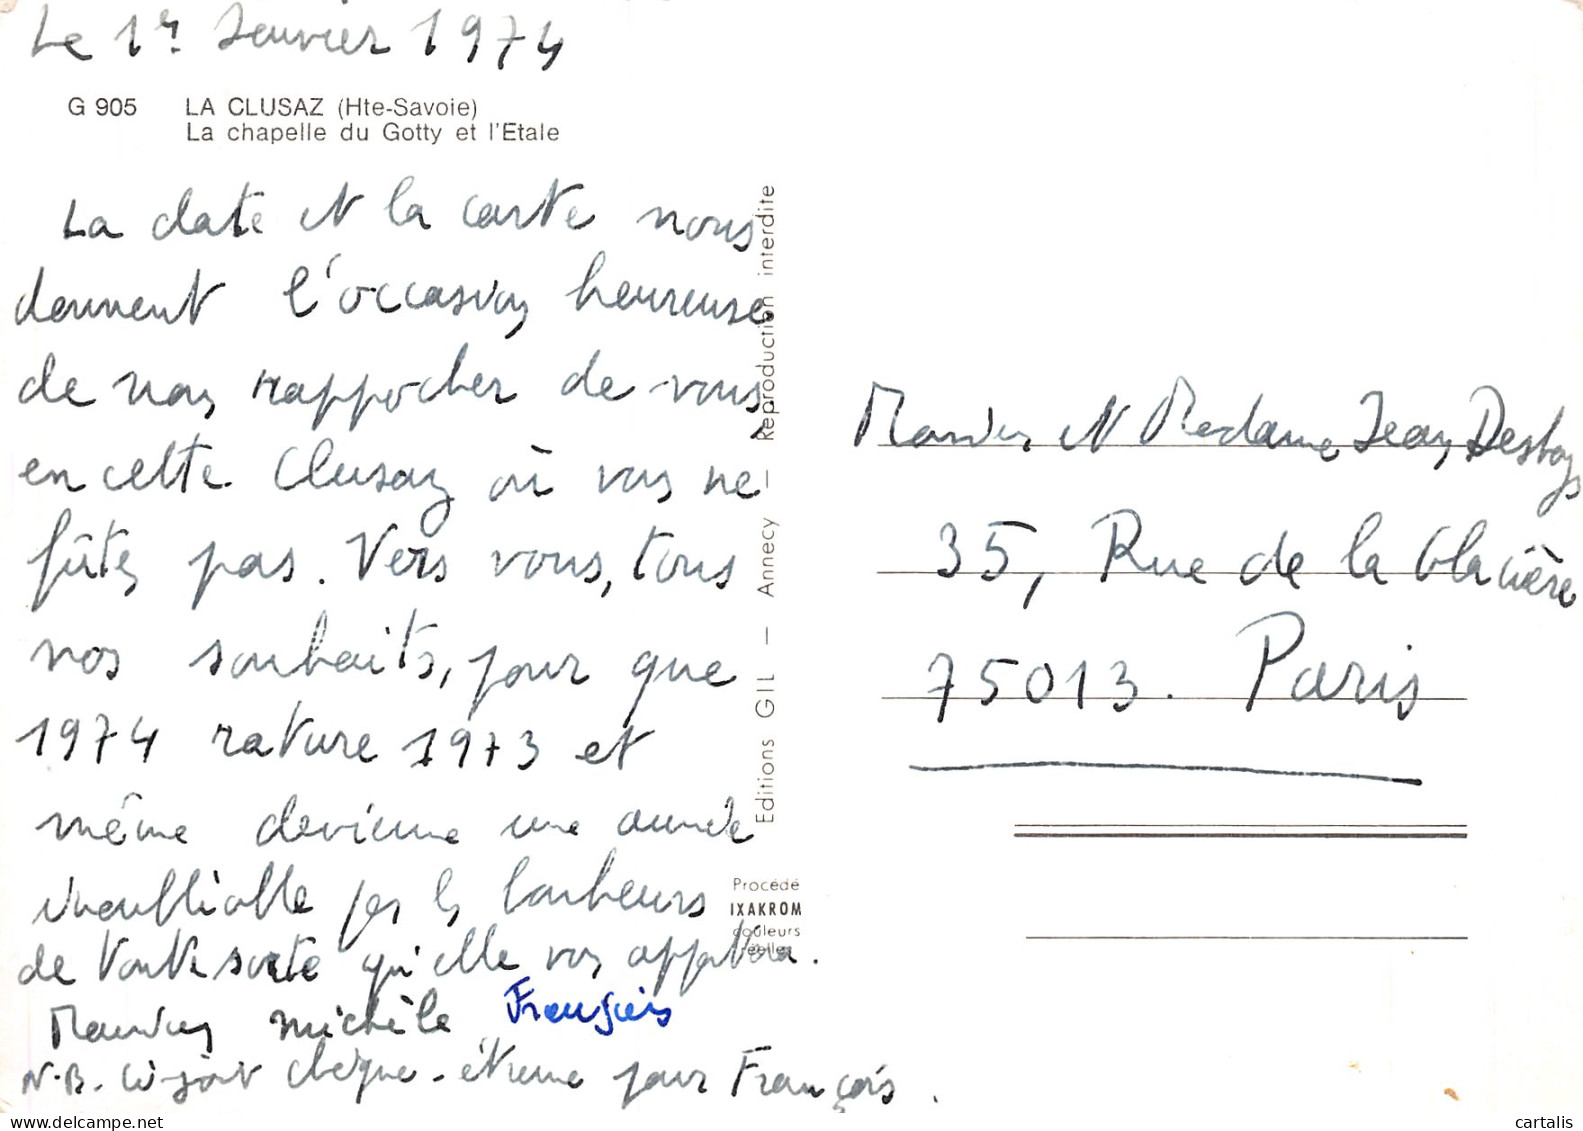 Le 1er Janvier 1974
G 905 LA CLUSAZ (Hte-Savoie)
La chapelle du Gotty et l'Etale
La date et la carte nous
donnent l'occasion heureuse
de nous rappocher de vous,
en cette Clusaz où vous ne
fûtes pas. Vers vous, tous
nos souhaits, pour que
1974 rature 1973 et
même devienne une année
inoubliable par les bonheurs
de toute sorte qu'elle vous apportera.
Michèle François
N.B. Ci-joint chèque-étrenne pour François.
Editions GIL — Annecy — Reproduction interdite
Procédé
IXAKROM
couleurs
réelles
et Madame Jean
35, Rue de la Glacière
75013. Paris
cartalis